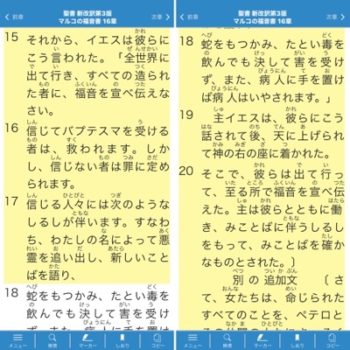 前章
聖書 新改訳第3版
マルコの福音書 16章
次章
15 それから、イエスは彼らに
こう言われた。「全世界に
出て行き、すべての造られ
た者に、福音を宣べ伝えな
さい。
16 信じてバプテスマを受ける
者は、救われます。しか
し、信じない者は罪に定め
られます。
17 信じる人々には次のような
しるしが伴います。すなわ
ち、わたしの名によって悪
霊を追い出し、新しいこと
ばを語り、
18 蛇をもつかみ、たとい毒を
飲んでも決して害を受け
ず、また、病人に手を置け
メニュー
検索
マーカー
しおり
コピー
前章
聖書 新改訳第3版
マルコの福音書 16章
次章
18 蛇をもつかみ、たとい毒を
飲んでも決して害を受け
ず、また、病人に手を置け
ば病人はいやされます。」
19 主イエスは、彼らにこう
話されて後、天に上げられ
て神の右の座に着かれた。
20 そこで、彼らは出て行っ
て、至る所で福音を宣べ伝
えた。主は彼らとともに働
き、みことばに伴うしるし
をもって、みことばを確か
なものとされた。〕
別の追加文〔さ
て、女たちは、命じられた
すべてのことを、ペテロと
メニュー
検索
マーカー
しおり
コピー